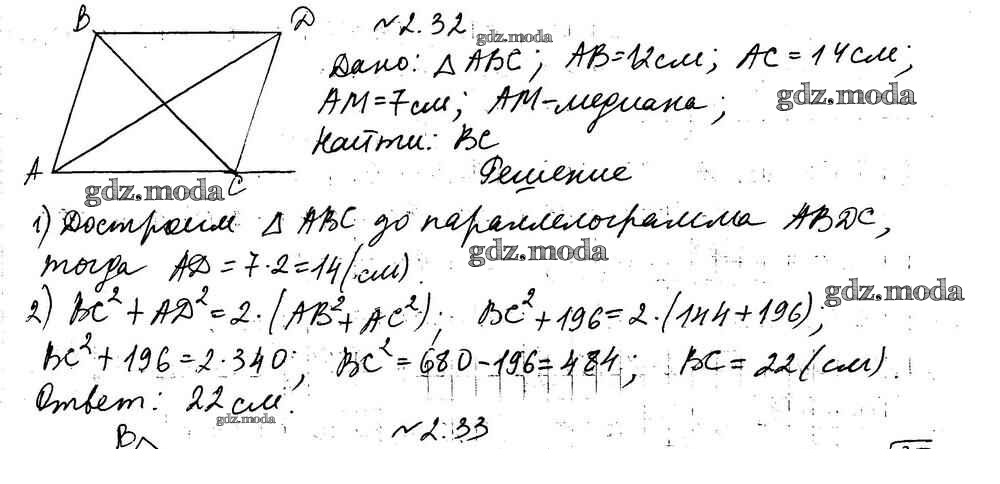 B D
№2.32
gdz.moda
Дано: △ABC; AB=12см; AC=14см;
AM=7см; AM-медиана;
gdz.moda
Найти: BC
A C
gdz.moda
Решение
1) Достроим △ABC до параллелограмма ABDC,
gdz.moda
тогда AD=7·2=14(см).
gdz.moda
2) BC²+AD²=2·(AB²+AC²); BC²+196=2·(144+196);
BC²+196=2·340; BC²=680-196=484; BC=22(см).
Ответ: 22см.
gdz.moda
B №2.33